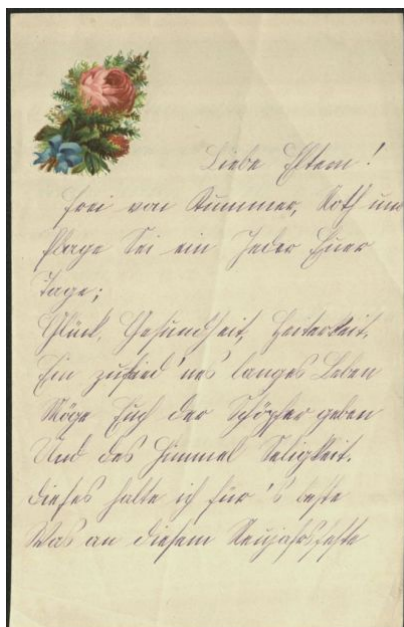 Liebe Eltern!
Frei von Kummer, Noth und
Plage Sei ein Jeder Eurer
Tage;
Glück, Gesundheit, Heiterkeit,
Ein zufried'nes langes Leben
Möge Euch der Schöpfer geben
Und des Himmel Seligkeit.
Dieses halte ich für's beste
Was an diesem Neujahrsfeste